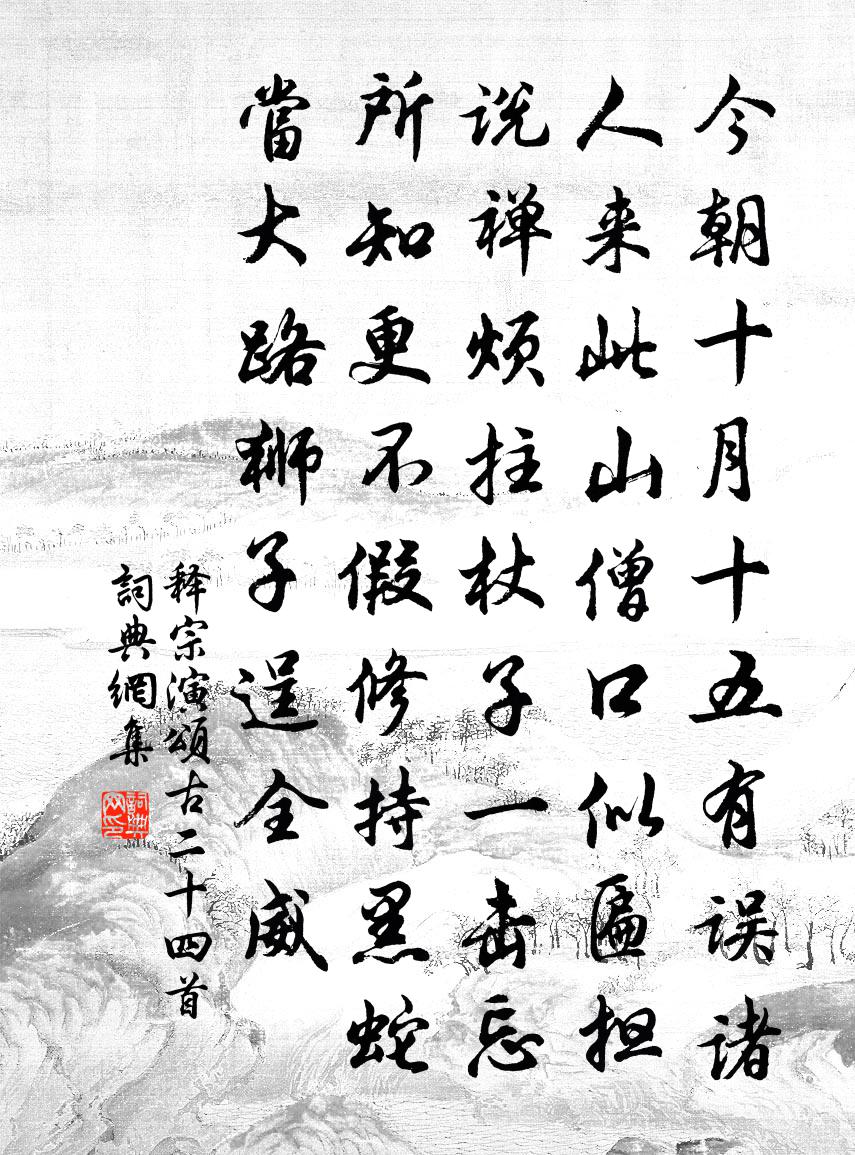 今朝十月十五有误诸
人来此山僧口似匾担
说禅烦拄杖子一击忘
所知更不假修持黑蛇
當大路狮子逞全威
释宗演頌古二十四首
詞典網集